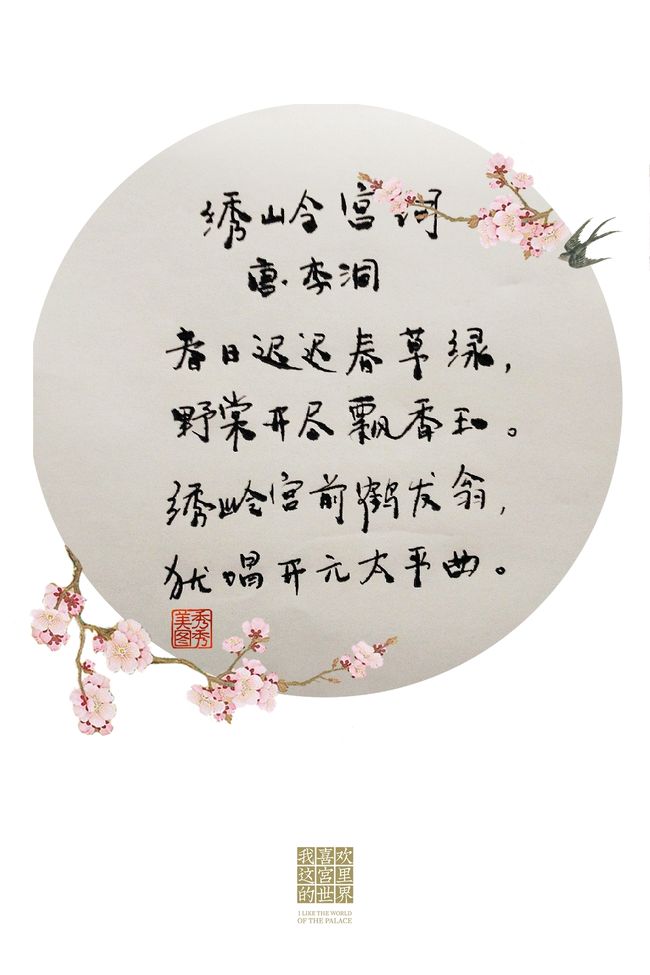 绣岭宫词
唐·李洞
春日迟迟春草绿，
野棠开尽飘香玉。
绣岭宫前鹤发翁，
犹唱开元太平曲。
美图秀秀
我喜欢
这宫里
的世界
I LIKE THE WORLD
OF THE PALACE